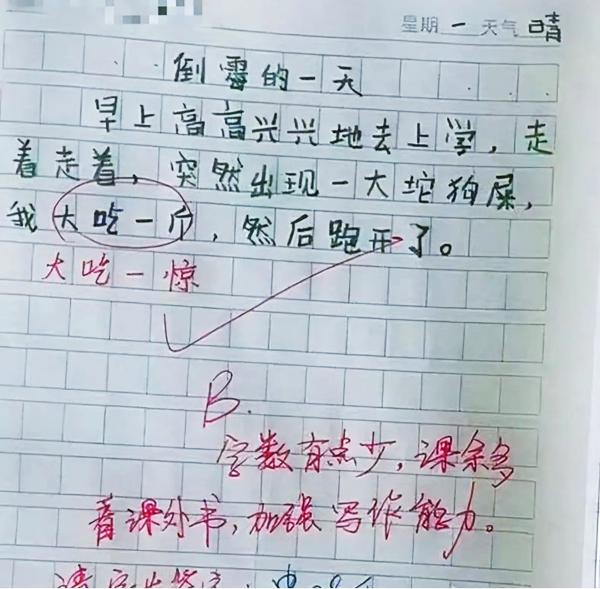 星期 一 天气 晴
倒霉的一天
早上高高兴兴地去上学，走
着走着，突然出现一大坨狗屎，
我大吃一斤，然后跑开了。
大吃一惊
B.
字数有点少，课余多
看课外书，加强写作能力。